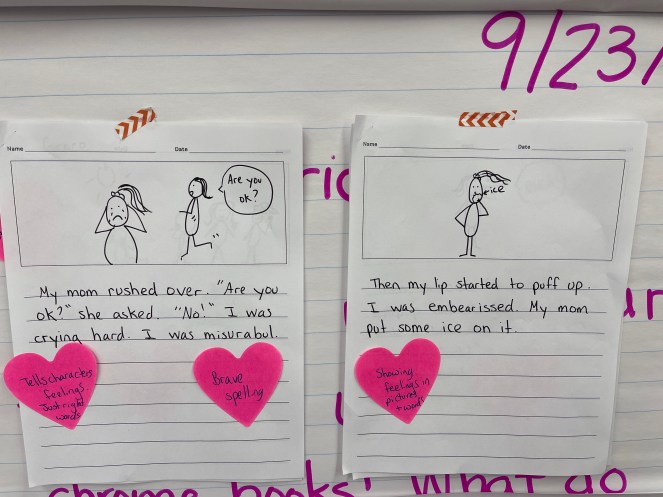 9/23/
Name
Date
Are you
ok?
My mom rushed over. "Are you
ok?" she asked. "No!" I was
crying hard. I was misurabul.
Tells characters
feelings.
Just right
words
Brave
spelling
Name
Date
ice
Then my lip started to puff up.
I was embearissed. My mom
put some ice on it.
Showing
feelings in
pictures
+ words
ric
ur
chrome books! What do